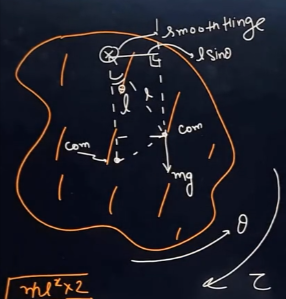 smooth hinge
l sinθ
θ
l
l
com
com
mg
θ
τ